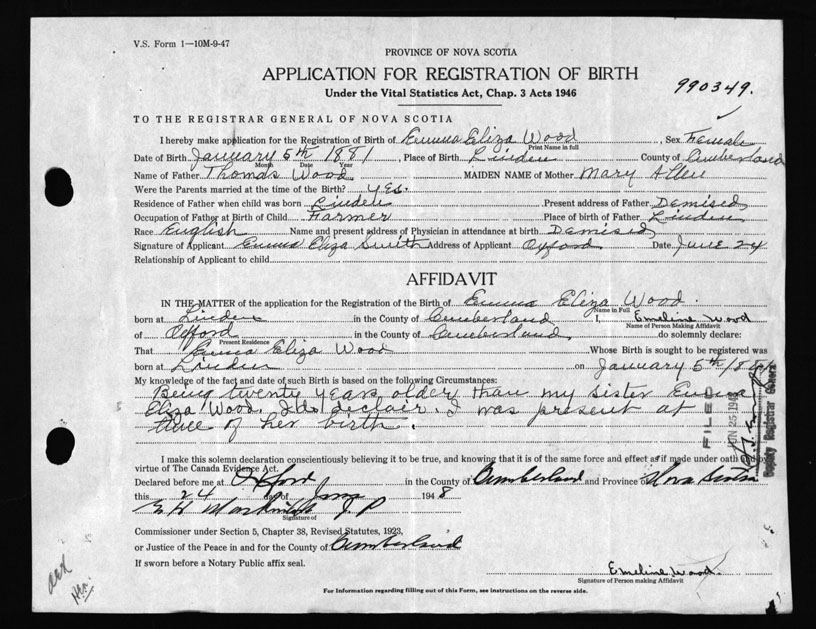 V.S. Form 1—10M-9-47
PROVINCE OF NOVA SCOTIA
APPLICATION FOR REGISTRATION OF BIRTH
Under the Vital Statistics Act, Chap. 3 Acts 1946
990349.
TO THE REGISTRAR GENERAL OF NOVA SCOTIA
I hereby make application for the Registration of Birth of Emma Eliza Wood, Sex Female
Print Name in full
Date of Birth January 5th 1881, Place of Birth Linden County of Cumberland
Month Date Year
Name of Father Thomas Wood MAIDEN NAME of Mother Mary Allen
Were the Parents married at the time of Birth? yes.
Residence of Father when child was born Linden Present address of Father Demised
Occupation of Father at Birth of Child Farmer Place of birth of Father Linden
Race English Name and present address of Physician in attendance at birth Demised
Signature of Applicant Emma Eliza Smith Address of Applicant Oxford Date June 24
Relationship of Applicant to child
AFFIDAVIT
IN THE MATTER of the application for the Registration of the Birth of Emma Eliza Wood.
Name in Full
born at Linden in the County of Cumberland I, Emeline Wood
Name of Person Making Affidavit
of Oxford in the County of Cumberland, do solemnly declare:
Present Residence
That Emma Eliza Wood Whose Birth is sought to be registered was
born at Linden on January 5th 1881
My knowledge of the fact and date of such Birth is based on the following Circumstances:
Being twenty years older than my sister Emma
Eliza Wood. I do declaer. I was present at
time of her birth.
FILED
JUN 25 1948
Deputy Registrar General
I make this solemn declaration conscientiously believing it to be true, and knowing that it is of the same force and effect as if made under oath by
virtue of The Canada Evidence Act.
Declared before me at Oxford in the County of Cumberland and Province of Nova Scotia
this 24 day of June 1948
J. P.
Signature of
Commissioner under Section 5, Chapter 38, Revised Statutes, 1923,
or Justice of the Peace in and for the County of Cumberland
If sworn before a Notary Public affix seal.
Emeline Wood.
Signature of Person making Affidavit
For Information regarding filling out of this Form, see instructions on the reverse side.